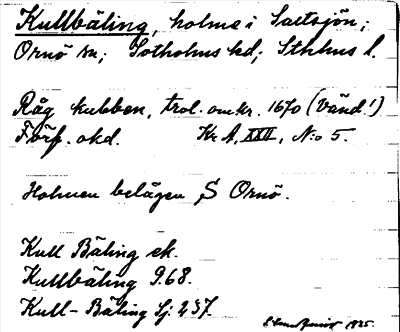 Kullbäling, holme i Saltsjön;
Ornö sn; Sotholms hd; Sthlms l.
Råg kubben, trol. omkr. 1670 (Vänd!)
Förf. okd. Kr. A. XXII, N:o 5.
Holmen belägen S Ornö.
Kull Bäling ek.
Kullbäling 9.68.
Kull-Bäling Sj. 237.
1925.